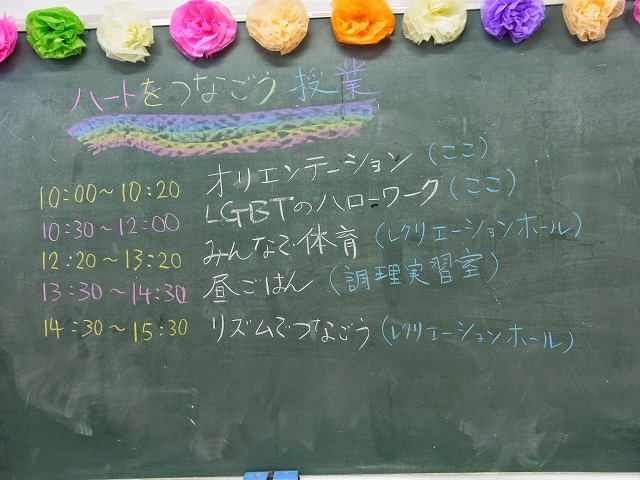 ハートをつなごう 授業
10:00~10:20 オリエンテーション (ここ)
10:30~12:00 LGBTのハローワーク (ここ)
12:20~13:20 みんなで体育 (レクリエーションホール)
13:30~14:30 昼ごはん (調理実習室)
14:30~15:30 リズムでつなごう (レクリエーションホール)